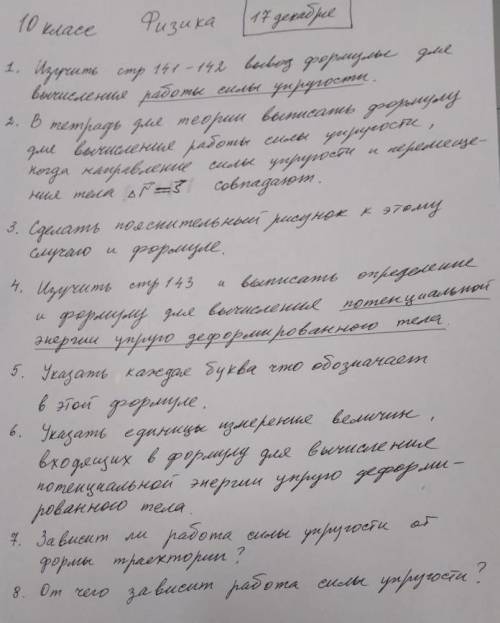 10 классе Физика 17 декабря
1. Изучить стр 141-142 вывод формулы для
вычисления работы силы упругости.
2. В тетрадь для теории выписать формулу
для вычисления работы силы упругости,
когда направление силы упругости и перемеще-
ния тела Δr⃗ = S⃗ совпадают.
3. Сделать пояснительный рисунок к этому
случаю и формуле.
4. Изучить стр 143 и выписать определение
и формулу для вычисления потенциальной
энергии упруго деформированного тела.
5. Указать каждая буква что обозначает
в этой формуле.
6. Указать единицы измерения величин,
входящих в формулу для вычисления
потенциальной энергии упруго деформи-
рованного тела.
7. Зависит ли работа силы упругости от
формы траектории?
8. От чего зависит работа силы упругости?